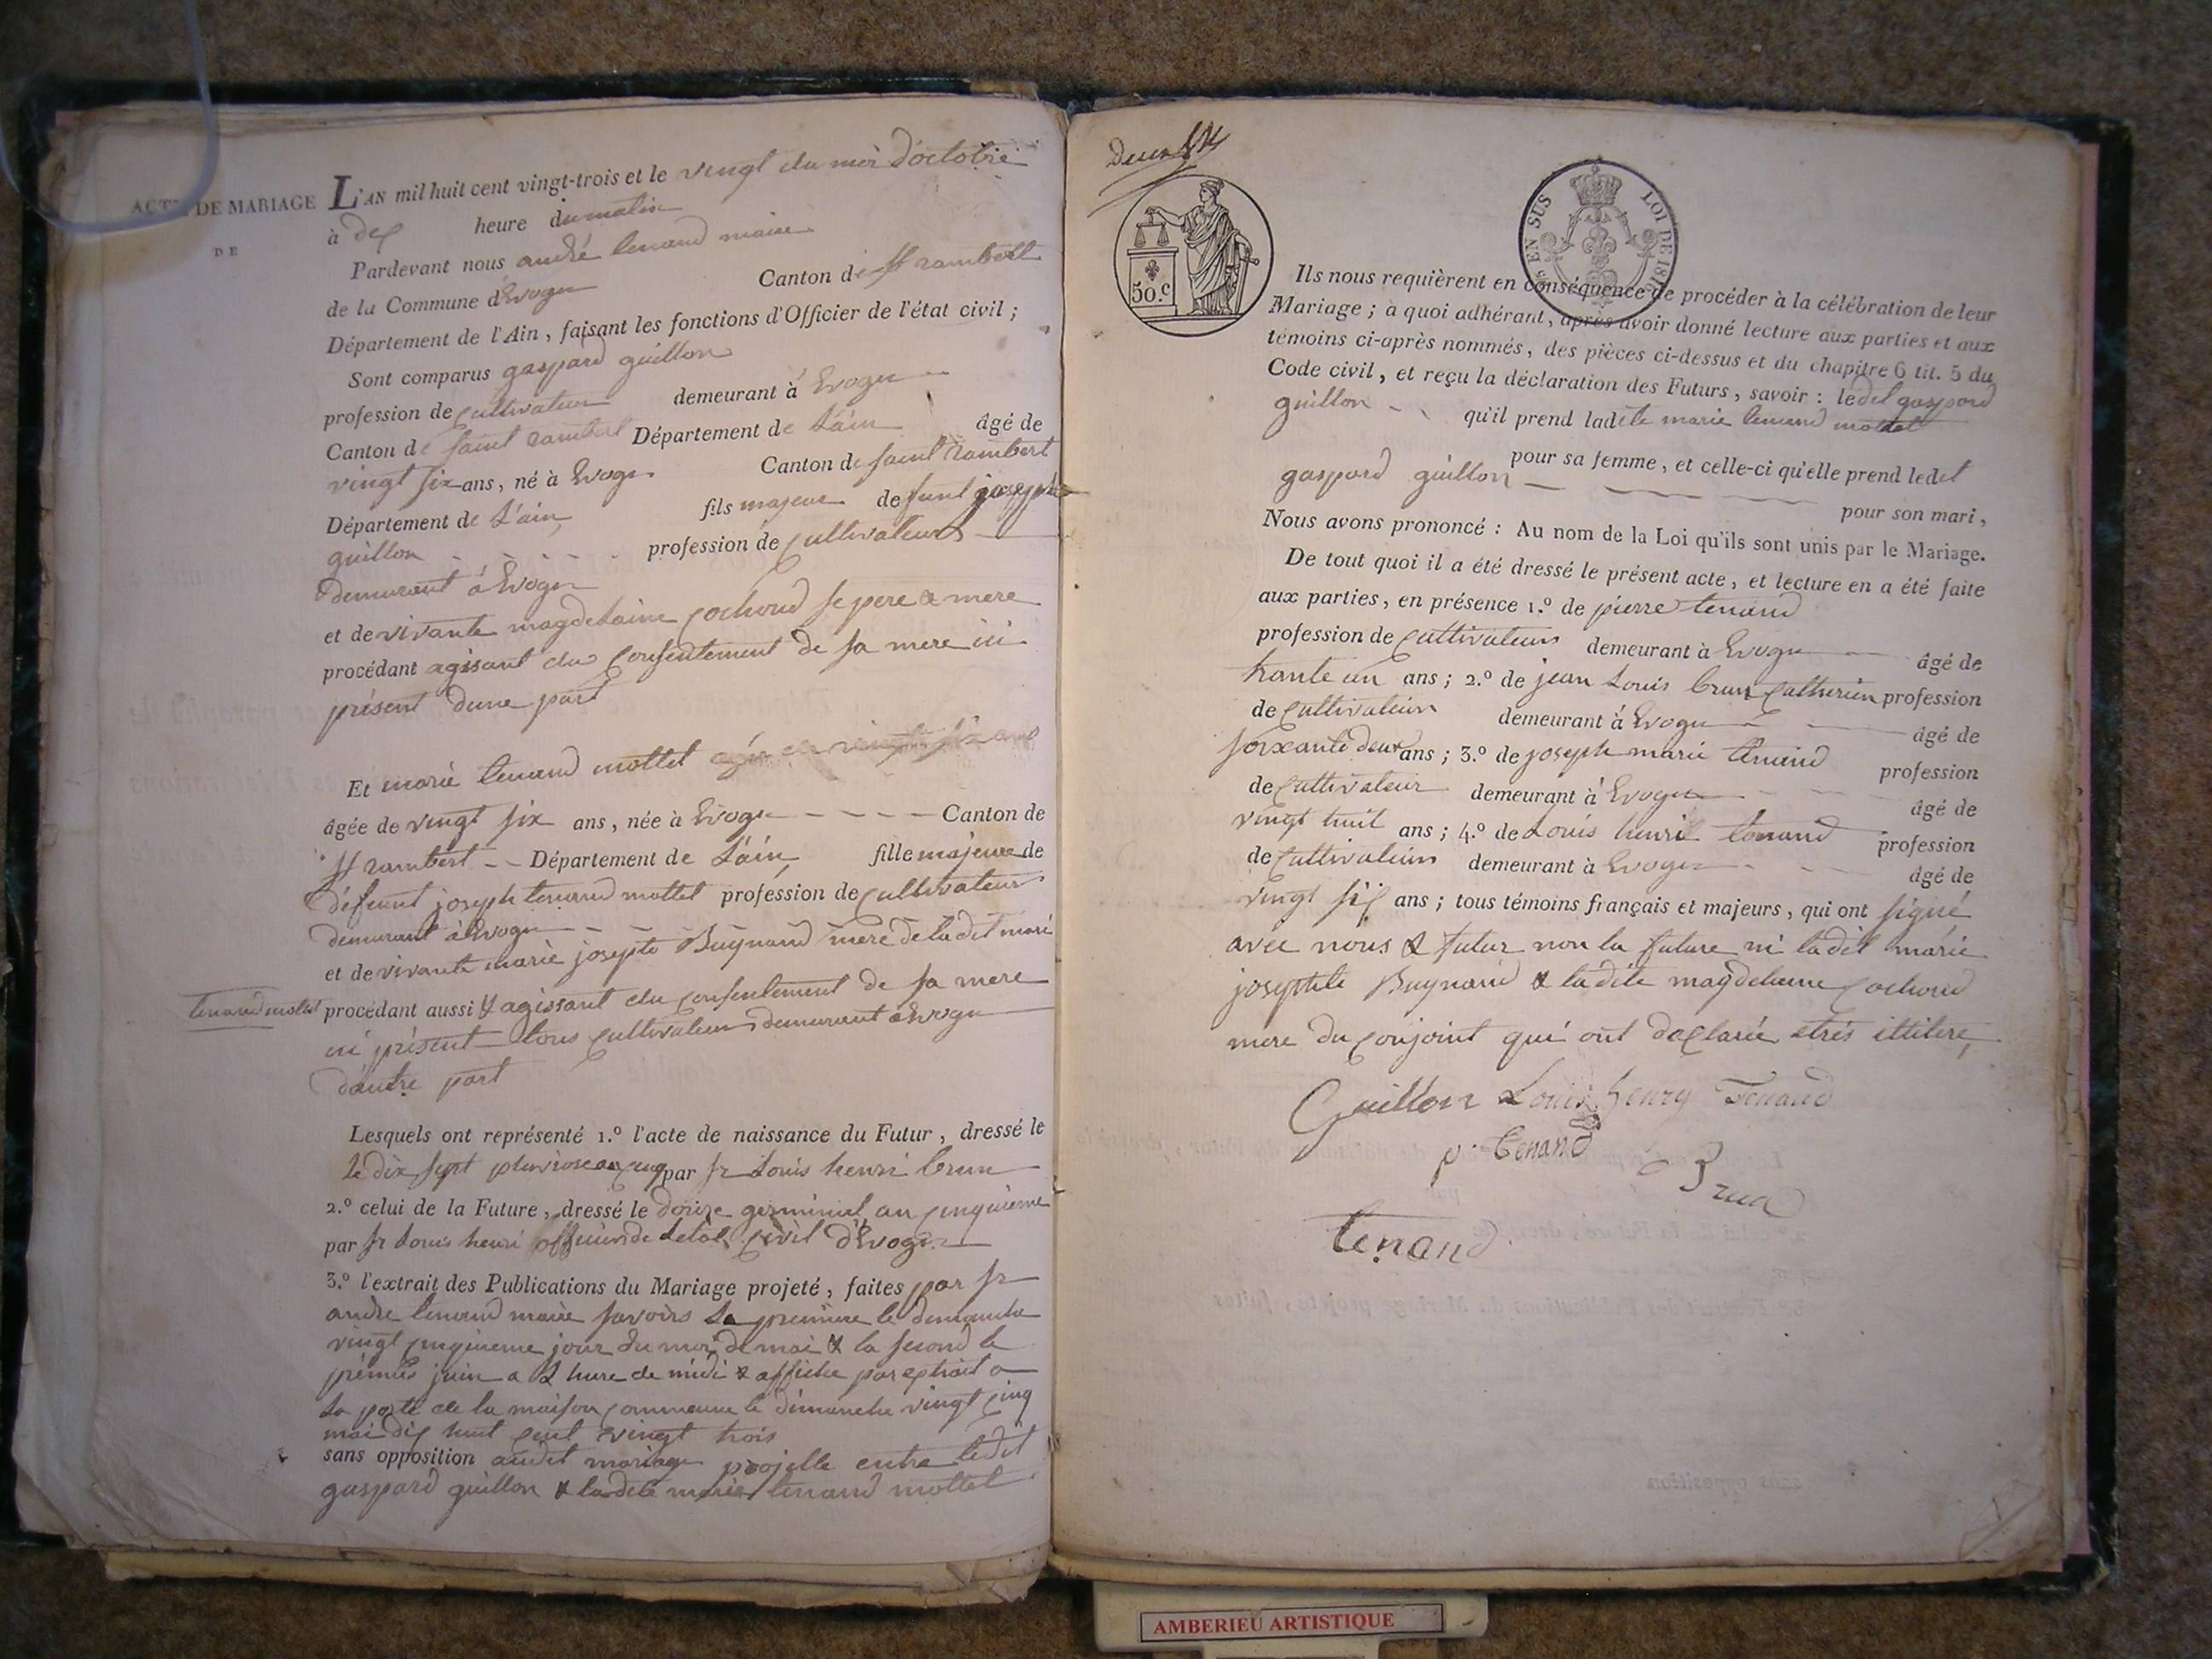 ACTE DE MARIAGE
DE
L'AN mil huit cent vingt-trois et le vingt du mois d'octobre
à dix heure du matin
Pardevant nous andré tenand maire
de la Commune d'Evoges Canton de St rambert
Département de l'Ain, faisant les fonctions d'Officier de l'état civil ;
Sont comparus gaspard guillon
profession de cultivateur demeurant à Evoges
Canton de saint rambert Département de L'ain âgé de
vingt six ans, né à Evoges Canton de saint rambert
Département de L'ain fils majeur de funt joseph
guillon profession de cultivateur
demeurant à Evoges
et de vivante magdelaine cochoud se pere & mere
procédant agisant du consentement de sa mere ici
présent dune part
Et marie tenand mottet
âgée de vingt six ans, née à Evoges Canton de
St rambert Département de L'ain fille majeure de
défunt joseph tenand mottet profession de cultivateur
demeurant à Evoges
et de vivante marie josephte Buynand mere de ladit marie
tenand mottet
procédant aussi & agissant du consentement de sa mere
ici présent tous cultivateurs demeurant à Evoges
dautre part
Lesquels ont représenté 1.º l'acte de naissance du Futur, dressé le
le dix sept pluviose an cinq par sr Louis henri brun
2.º celui de la Future, dressé le douze germinal an cinquieme
par sr Louis henri officier de Letat civil d'Evoges
3.º l'extrait des Publications du Mariage projeté, faites par sr
andre tenand maire savoirs La premiere le dimanche
vingt cinquieme jour du moi de mai & la second le
premier juin a 2 hure de midi & affiche par extrait a
La porte de la maison commune le dimanche vingt cinq
mai dix huit cent vingt trois
sans opposition audit mariage projette entre ledit
gaspard guillon & ladite marie tenand mottet
50.c
EN SUS LOI DE 1816
Ils nous requièrent en conséquence de procéder à la célébration de leur
Mariage ; à quoi adhérant, après avoir donné lecture aux parties et aux
témoins ci-après nommés, des pièces ci-dessus et du chapitre 6 tit. 5 du
Code civil, et reçu la déclaration des Futurs, savoir : ledit gaspard
guillon qu'il prend ladite marie tenand mottet
pour sa femme, et celle-ci qu'elle prend ledit
gaspard guillon
pour son mari,
Nous avons prononcé : Au nom de la Loi qu'ils sont unis par le Mariage.
De tout quoi il a été dressé le présent acte, et lecture en a été faite
aux parties, en présence 1.º de pierre tenand
profession de cultivateur demeurant à Evoges âgé de
trante un ans ; 2.º de jean Louis brun profession
de cultivateur demeurant à Evoges âgé de
soixante deux ans ; 3.º de joseph marie tenand profession
de cultivateur demeurant à Evoges âgé de
vingt huit ans ; 4.º de Louis henri tenand profession
de cultivateur demeurant à Evoges âgé de
vingt six ans ; tous témoins français et majeurs, qui ont signé
avec nous & futur non la future ni ladit marie
josephte Buynand & ladite magdelaine cochoud
mere du conjoint qui ont declarée etres illitere
Guillon Louis henry Tenand
p. tenand
Brun
tenand
AMBERIEU ARTISTIQUE